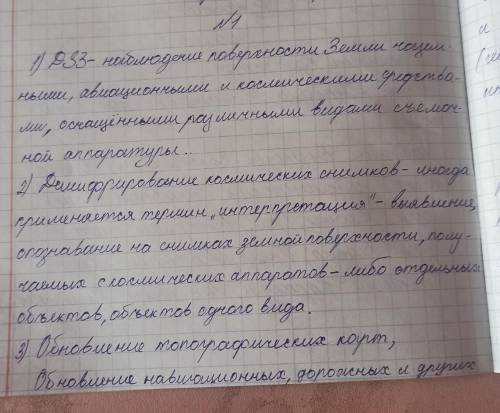 №1
1) ДЗЗ - наблюдение поверхности Земли назем-
ными, авиационными и космическими средства-
ми, оснащёнными различными видами съёмоч-
ной аппаратуры..
2) Дешифрирование космических снимков - иногда
применяется термин „интерпретация" - выявление,
опознавание на снимках земной поверхности, полу-
чаемых с космических аппаратов - либо отдельных
объектов, объектов одного вида.
3) Обновление топографических карт,
Обновление навигационных, дорожных и других